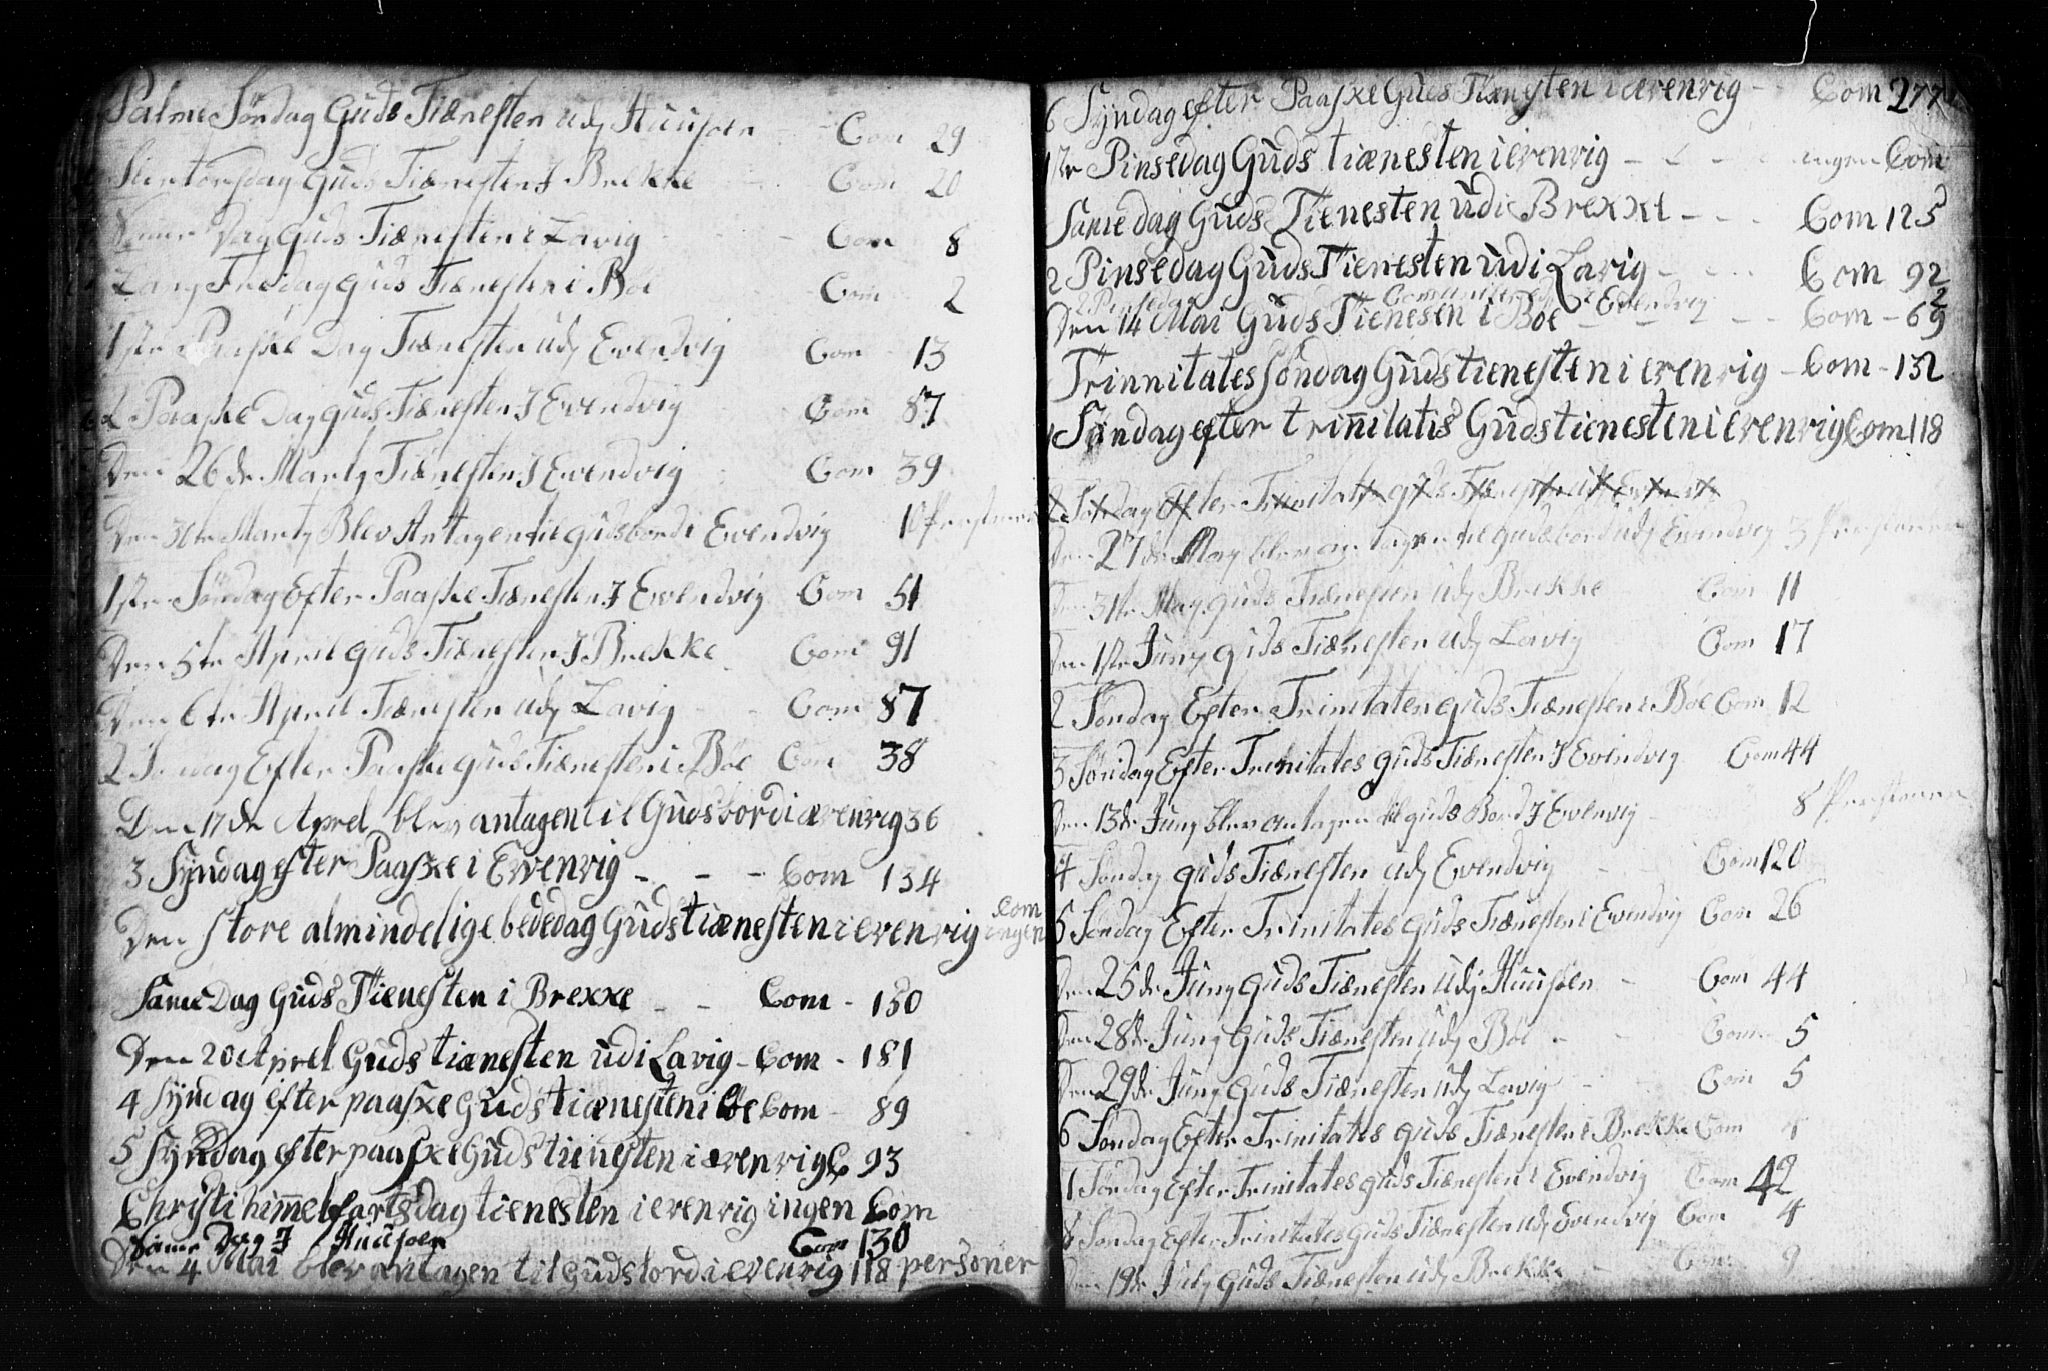 Palme Søndag Guds Tiænesten udj Huusøen - Com 29
Skiertorsdag Guds Tiænesten J Brekke - Com 20
Same Dag Guds Tiænesten i Lavig - Com 8
Lang Fredag Guds Tiænesten i Böe Com 2
1ste Paaske Dag Tiænesten udj Evendvig Com 13
2 Paaske Dag Guds Tiænesten J Evendvig Com 87
Den 26 de Marty Tiænesten J Evendvig Com 39
Den 30te Marty Blev Antagen til Gudsbord i Evendvig 1
1ste Søndag Efter Paaske Tiænesten J Evendvig Com 51
Den 5te April Guds Tiænesten J Brekke Com 91
Den 6te April Tiænesten udj Lavig - Com 87
2 Søndag Efter Paaske Guds Tiænesten i Böe Com 38
Den 17 de Aprel blev antagen til Gudsbord i ævenvig 36
3 Syndag efter Paaske i Evenvig - - - Com 134
Den store almindelige bededag Guds tiænesten i evenvig Com ingen
Same Dag Guds Tienesten i Brexxe - - Com - 150
Den 20 Aprel Guds tiænesten udi Lavig - Com - 181
4 Syndag efter paaske Guds tiænesten i Böe Com - 89
5 Syndag efter paaske Guds tienesten i ævenvig C 93
Christi himmelfartsdag tienesten i evenvig ingen Com
Same Dag J Huusøen Com 130
Den 4 Mai blev antagen til Gudsbord i evenvig 118 personer
6 Syndag efter Paaske Guds Tiænesten i ævenvig - Com 277
1ste Pinsedag Guds tiænesten i evenvig - - - ingen Com
Same dag Guds Tienesten udi Brexxe - - - Com 125
2 Pinsedag Guds Tienesten udi Lavig - - - Com 92
2 Pinsedag i Evendvig 2
Den 14 Mai Guds Tienesen i Böe - - - Com - 69
Trinnitates søndag Guds tienesten i evenvig - Com - 132
1 Søndag efter trinitatis Guds tienesten i evenvig Com 118
2 Søndag Efter Trinitates Guds Tiænesten udj
Den 27 de May blev antagen til Gudsbord udj Evendvig 3
Den 31te May Guds Tiænesten udj Brekke Com 11
Den 1ste Juny Guds Tiænesten udj Lavig Com 17
2 Søndag Efter Trinitaten Guds Tiænesten i Böe Com 12
3 Søndag Efter Trinitates Guds Tiænesten J Evindvig Com 44
Den 13de Juny blev antagen til Guds Bord J Evenvig - 8
4 Søndag Guds Tiænesten udj Evendvig - - Com 120
5 Søndag Efter Trinitates Guds Tiænesten i Evendvig Com 26
Den 25 de Juny Guds Tiænesten udj Huusøen - Com 44
Den 28de Juny Guds Tiænesten udj Böe - - Com 5
Den 29de Juny Guds Tiænesten udj Lavig - - Com 5
6 Søndag Efter Trinitates Guds Tiænesten i Brekke Com 4
Søndag Efter Trinitates Guds Tiænesten i Evendvig Com 42
8 Søndag Efter Trinitates Guds Tiænesten udj Evendvig Com 4
Den 19de July Guds Tiænesten udj Brekke - Com 9